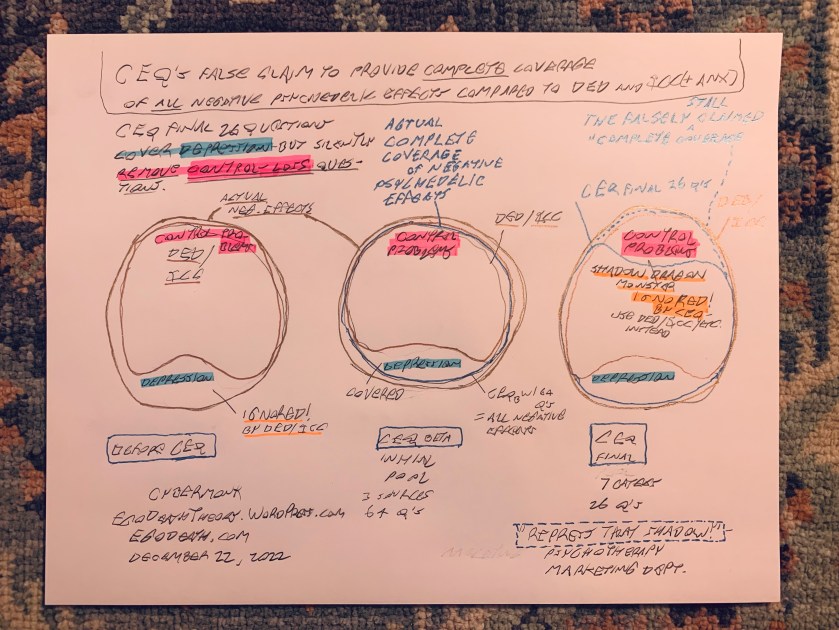 CEQ'S FALSE CLAIM TO PROVIDE COMPLETE COVERAGE
OF ALL NEGATIVE PSYCHEDELIC EFFECTS COMPARED TO DED AND ICC(+ANX)
CEQ FINAL 26 QUESTIONS
COVER DEPRESSION BUT SILENTLY
REMOVE CONTROL-LOSS QUES-
TIONS.
ACTUAL
COMPLETE
COVERAGE
OF NEGATIVE
PSYCHEDELIC
EFFECTS
STILL
THE FALSELY CLAIMED
"COMPLETE COVERAGE
ACTUAL
NEG. EFFECTS
CONTROL PRO-
BLEMS
DED/
ICC
DEPRESSION
IGNORED!
BY DED/ICC
BEFORE CEQ
DED/ICC
CONTROL
PROBLEMS
DEPRESSION
COVERED
CEQB W/64
Q'S
= ALL NEGATIVE
EFFECTS
CEQ BETA
INITIAL
POOL
3 SOURCES
64 Q'S
CEQ FINAL 26 Q'S
DED/
ICC
CONTROL
PROBLEMS
SHADOW DRAGON
MONSTER
IGNORED!
BY CEQ-
USE DED/ICC/ETC.
INSTEAD
DEPRESSION
CEQ
FINAL
7 CATEGS
26 Q'S
"REPRESS THAT SHADOW!"
PSYCHOTHERAPY
MARKETING DEPT.
CYBERMONK
EGODEATHTHEORY.WORDPRESS.COM
EGODEATH.COM
DECEMBER 22, 2022